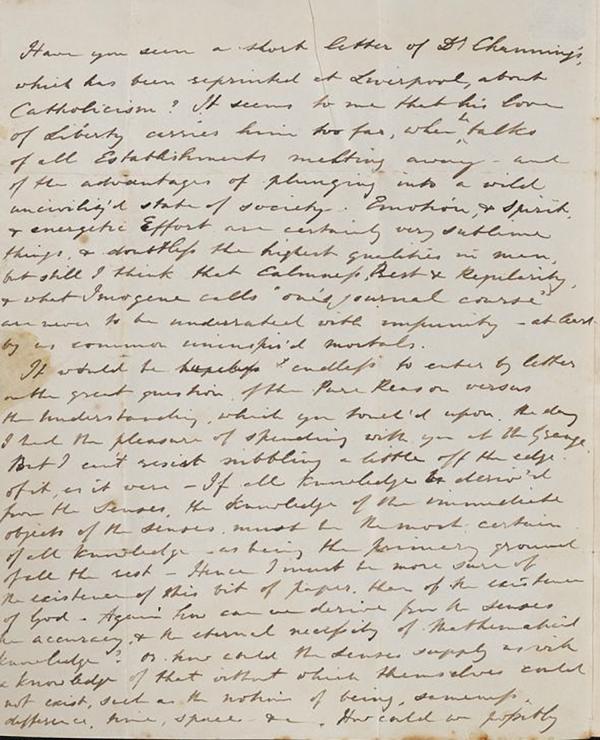 Have you seen a short letter of Dr Channing's,
which has been reprinted at Liverpool, about
Catholicism? It seems to me that his love
of Liberty carries him too far, when he talks
of all Establishments melting away - and
of the advantages of plunging into a wild
unciviliz'd state of society. Emotion, & Spirit,
& energetic Effort are certainly very sublime
things, & doubtless the highest qualities in men,
but still I think that Calmness, Rest & Regularity,
& what Imogene calls "one's journal course"
are never to be underrated with impunity - at least
by us common uninspir'd mortals.
It would be & endless to enter by letter
on the great question of the Pure Reason versus
the Understanding, which you touch'd upon the day
I had the pleasure of spending with you at the Grange.
But I can't resist nibbling a little off the edge
of it, as it were - If all knowledge is deriv'd
from the Senses, the knowledge of the immediate
objects of the senses must be the most certain
of all knowledge - as being the primary ground
of all the rest - Hence I must be more sure of
the existence of this bit of paper, than of the existence
of God - Again how can we derive from the senses
the accuracy, & the eternal necessity of Mathematical
knowledge? Or how could the senses supply us with
a knowledge of that without which themselves could
not exist, such as the notions of being, sameness,
difference, time, space &c. How could we possibly